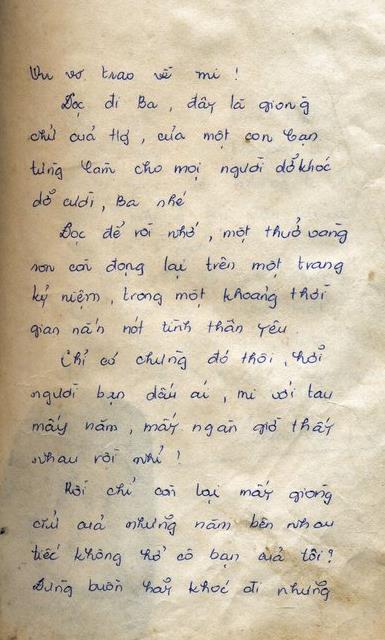 Vu vơ trao về mi !
Đọc đi Ba , đây là giòng
chữ của Hạ , của một con bạn
từng làm cho mọi người dở khóc
dở cười , Ba nhé
Đọc để rồi nhớ , một thuở vàng
son còn đọng lại trên một trang
kỷ niệm , trong một khoảng thời
gian nắn nót tình thân yêu .
Chỉ có chừng đó thôi , hỡi
người bạn dấu ái , mi với tau
mấy năm , mấy ngàn giờ thấy
nhau rồi nhỉ !
Rồi chỉ còn lại mấy giòng
chữ của những năm bên nhau
tiếc không hở cô bạn của tôi ?
Đừng buồn hãy khóc đi nhưng